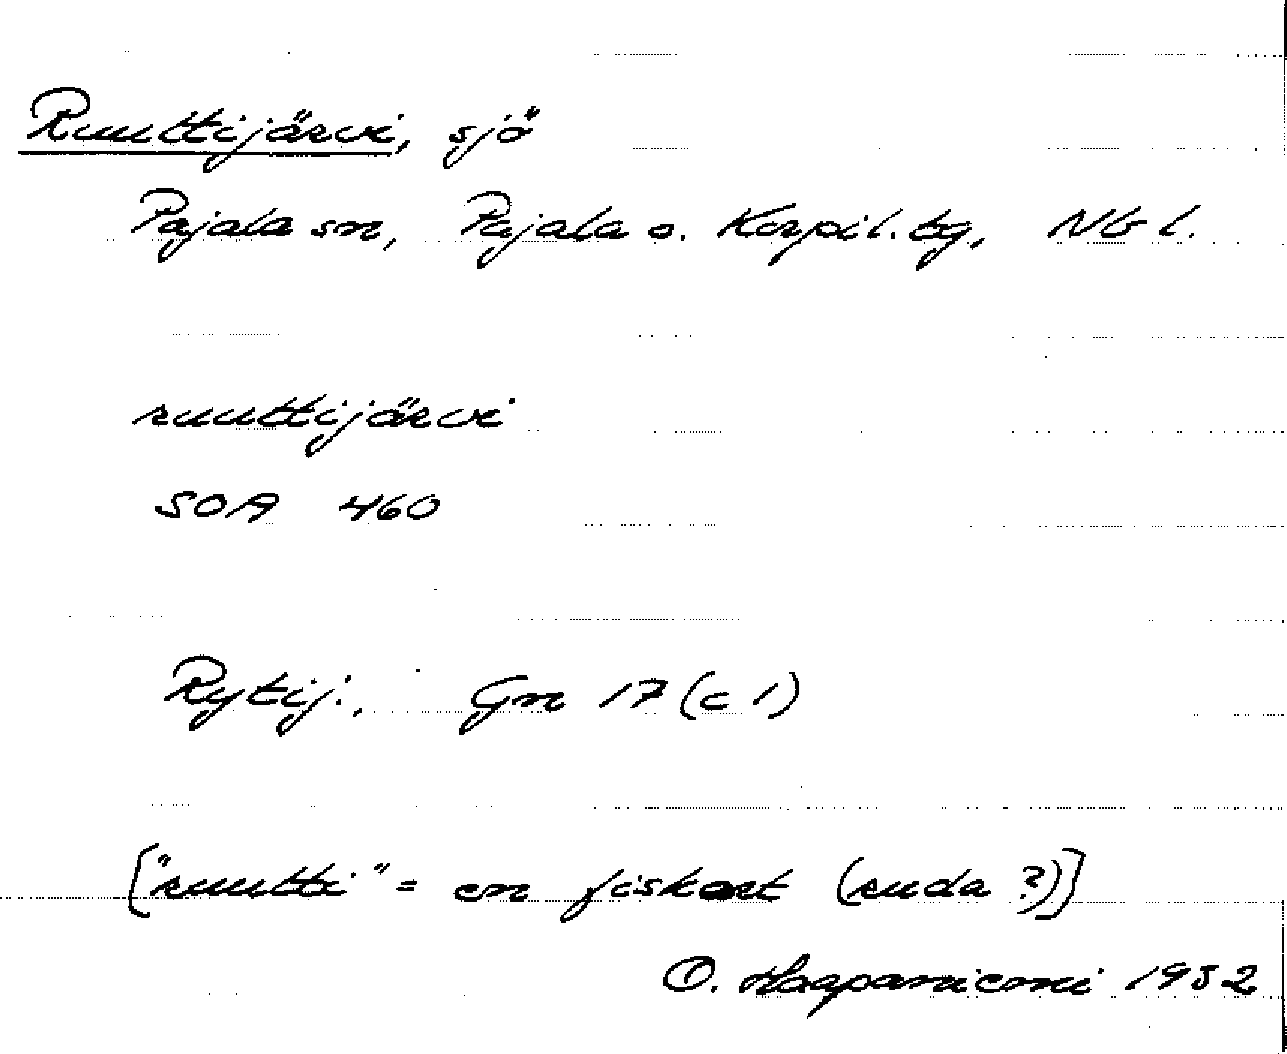 Ruuttijärvi, sjö
Pajala sn, Pajala o. Korpil. tg, Nb l.
ruuttijärvi
SOA 460
Rytij:, Gm 17 (c 1)
["ruutti" = en fiskart (ruda ?)]
O. Haapaniemi 1932